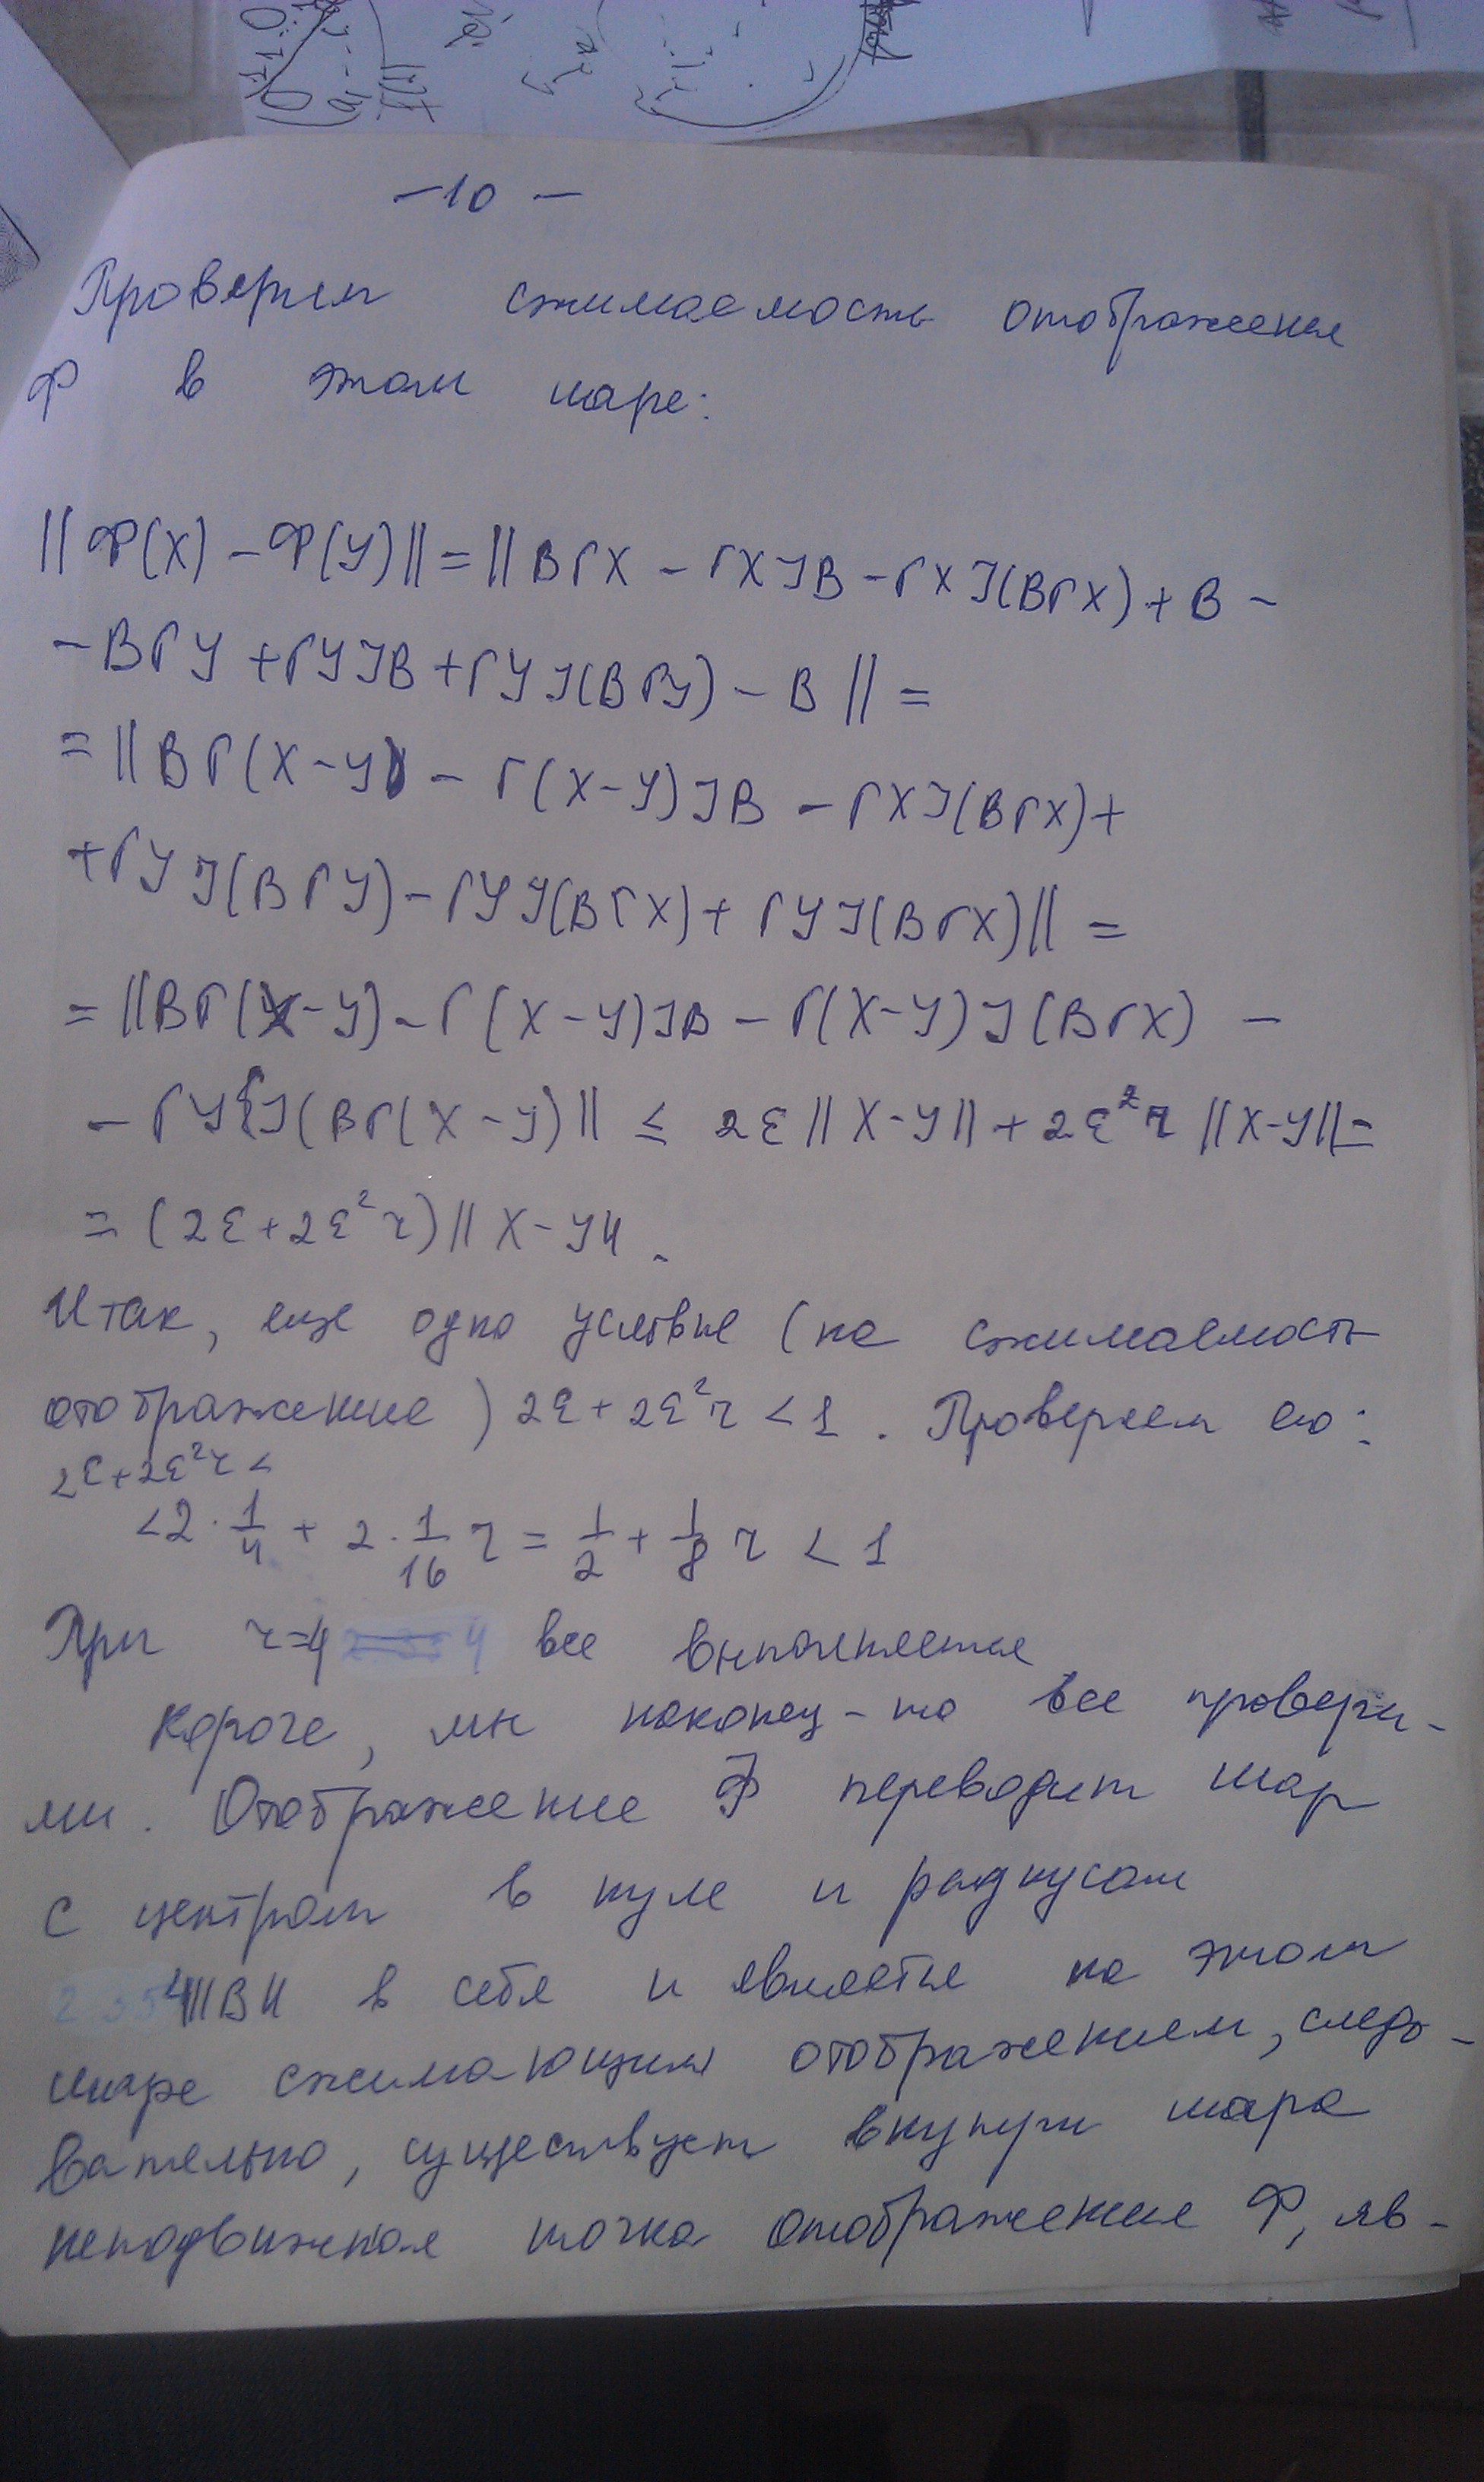 -10-
Проверим сжимаемость отображения
Ф в этом шаре:
||Ф(X) - Ф(Y)|| = ||BГX - ГXJB - ГXJ(BГX) + B -
- BГY + ГYJB + ГYJ(BГY) - B|| =
= ||BГ(X-Y) - Г(X-Y)JB - ГXJ(BГX) +
+ ГYJ(BГY) - ГYJ(BГX) + ГYJ(BГX)|| =
= ||BГ(X-Y) - Г(X-Y)JB - Г(X-Y)J(BГX) -
- ГYJ(BГ(X-Y)|| ≤ 2ε||X-Y|| + 2ε²r||X-Y|| =
= (2ε + 2ε²r)||X-Y||.
Итак, еще одно условие (на сжимаемость
отображение) 2ε + 2ε²r < 1. Проверяем его:
2ε + 2ε²r <
< 2 · 1/4 + 2 · 1/16 r = 1/2 + 1/8 r < 1
При r=4 4 все выполняется
Короче, мы наконец-то все провери-
ли. Отображение Ф переводит шар
с центром в нуле и радиусом
4||B|| в себя и является на этом
шаре сжимающим отображением, следо-
вательно, существует внутри шара
неподвижная точка отображения Ф, яв-